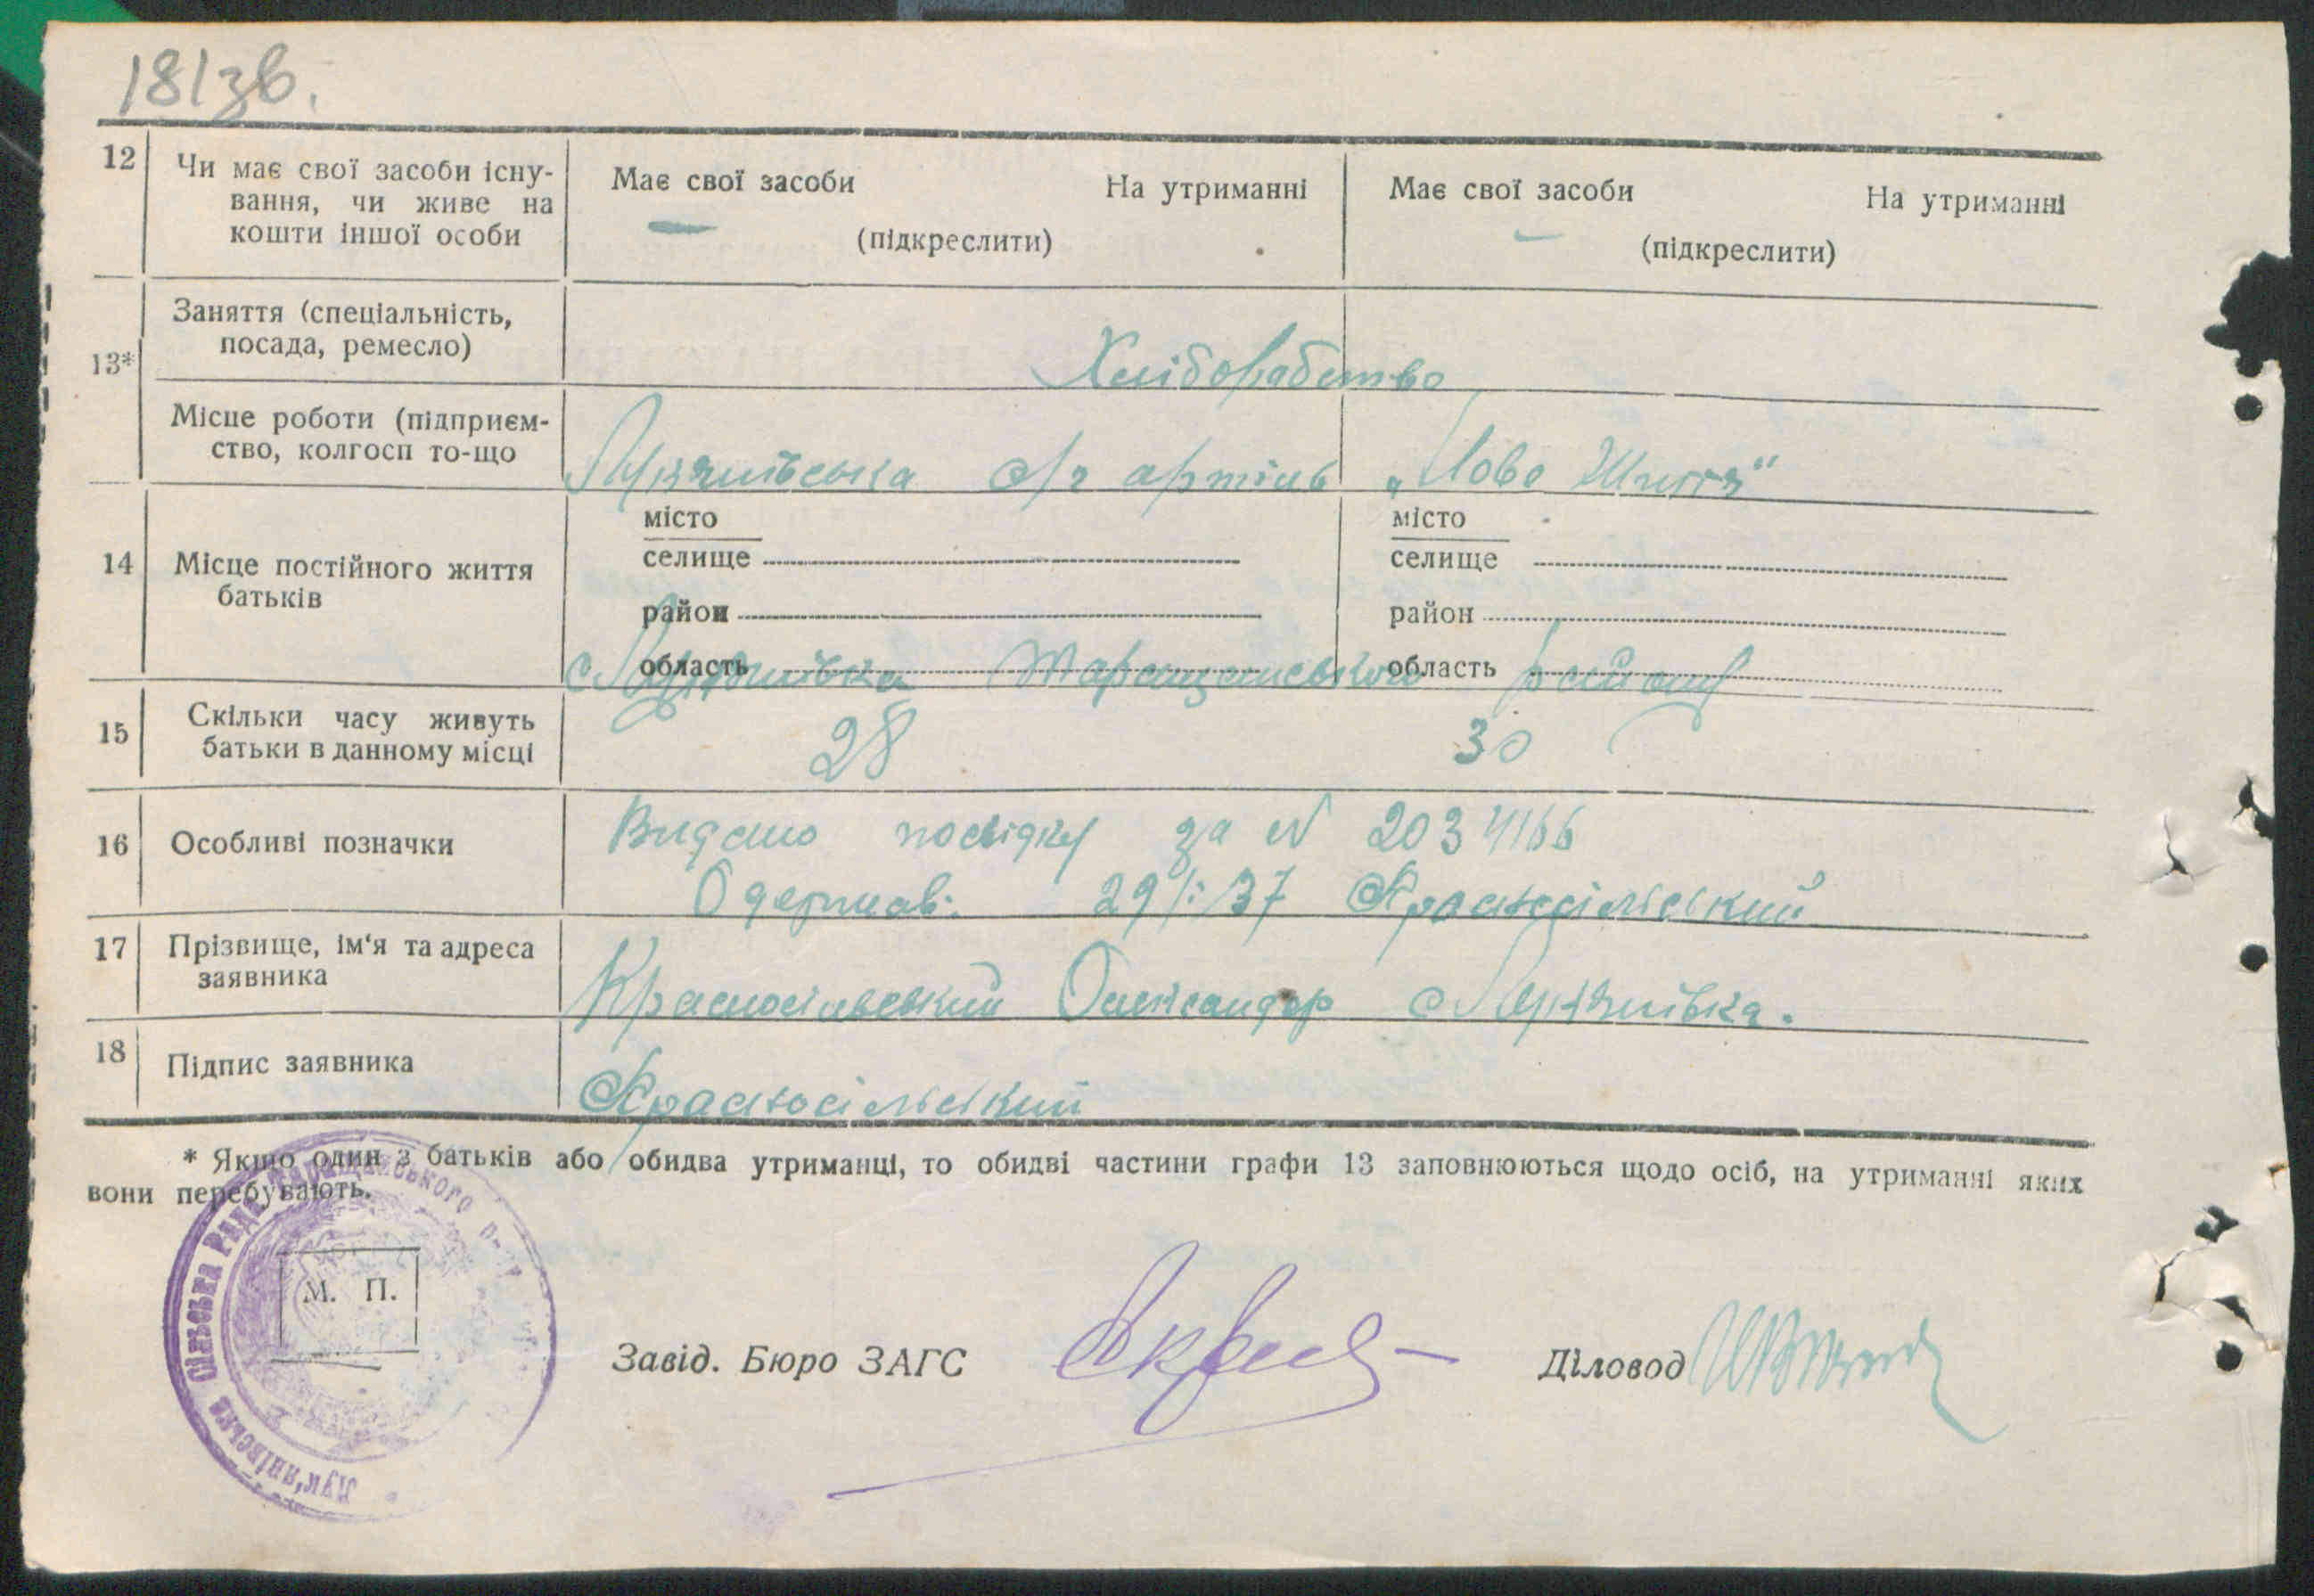 181зв.
12 Чи має свої засоби існу-
вання, чи живе на
кошти іншої особи
Має свої засоби На утриманні
(підкреслити)
Має свої засоби На утриманні
(підкреслити)
13*
Заняття (спеціальність,
посада, ремесло)
Хліборабство
Місце роботи (підприєм-
ство, колгосп то-що
с/г артіль „Нове Життя“
14 Місце постійного життя
батьків
місто
селище
район
область
місто
селище
район
область
с Лук'янівка Таращанського району
15 Скільки часу живуть
батьки в данному місці
28 30
16 Особливі позначки
Видано посвідку за N 2034166
Одержав: 29/I 37 Красносільський
17 Прізвище, ім'я та адреса
заявника
Красносільський Олександр с Лук'янівка.
18 Підпис заявника
Красносільський
* Якщо один з батьків або обидва утриманці, то обидві частини графи 13 заповнюються щодо осіб, на утриманні яких
вони перебувають.
Лук'янівська Сільська Рада Таращанського р-ну
М. П.
Завід. Бюро ЗАГС
Діловод